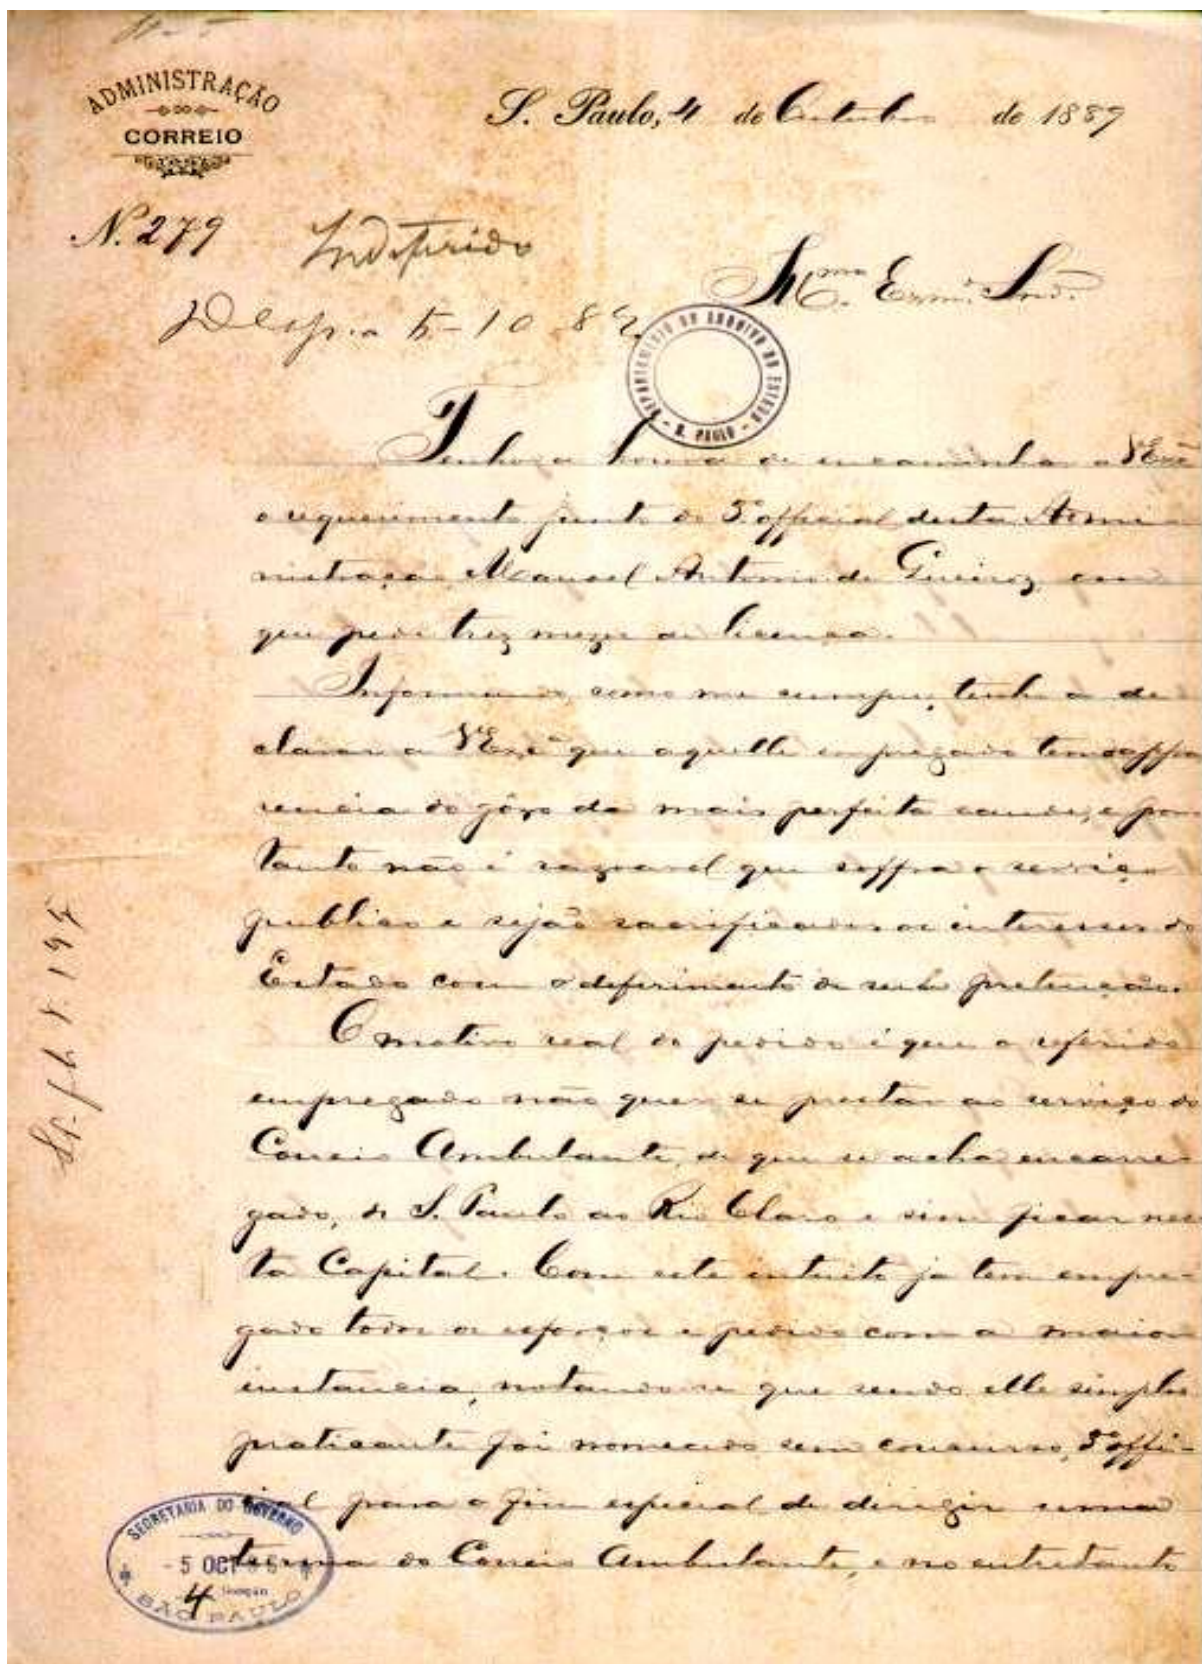 ADMINISTRAÇÃO
CORREIO
S. Paulo, 4 de Outubro de 1889
N. 279
Indeferido
Illmo. Exmo. Snr.
5-10-89
DEPARTAMENTO DO ARCHIVO DO ESTADO
S. PAULO
Tenho a honra de encaminhar a V. Exa.
o requerimento junto do 3º official desta Admi-
nistração Manoel Antonio de Queiroz, em
que pede trez mezes de licença.
Informando, como me cumpre, tenho a de-
clarar a V. Exa. que aquelle empregado tem appa
rencia do gôzo da mais perfeita saude, e por
tanto não é razoavel que soffra o serviço
publico e sejão sacrificados os interesses do
Estado com o deferimento de sua pretenção.
O motivo real do pedido é que o referido
empregado não quer se prestar ao serviço do
Correio Ambulante, de que se acha encarre-
gado, de S. Paulo ao Rio Claro e sim ficar nes
ta Capital. Com este intuito ja tem empre-
gado todos os esforços e pedido com a maior
instancia, notando-se que sendo elle simples
praticante foi nomeado sem concurso, 3º offi-
cial para o fim especial de dirigir uma
turma do Correio Ambulante, e no entretanto
SECRETARIA DO GOVERNO
5 OCT
4
SÃO PAULO